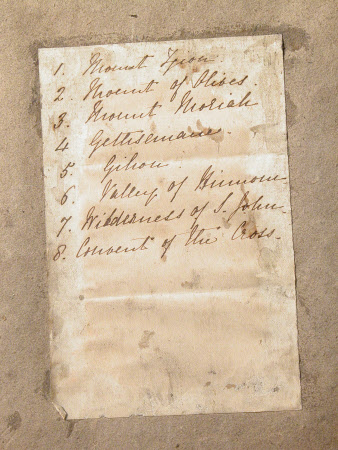 1. Mount Zion
2. Mount of Olives.
3. Mount Moriah
4 Gethsemane.
5. Gihon.
6. Valley of Hinnom
7. Wilderness of S. John.
8. Convent of the Cross.